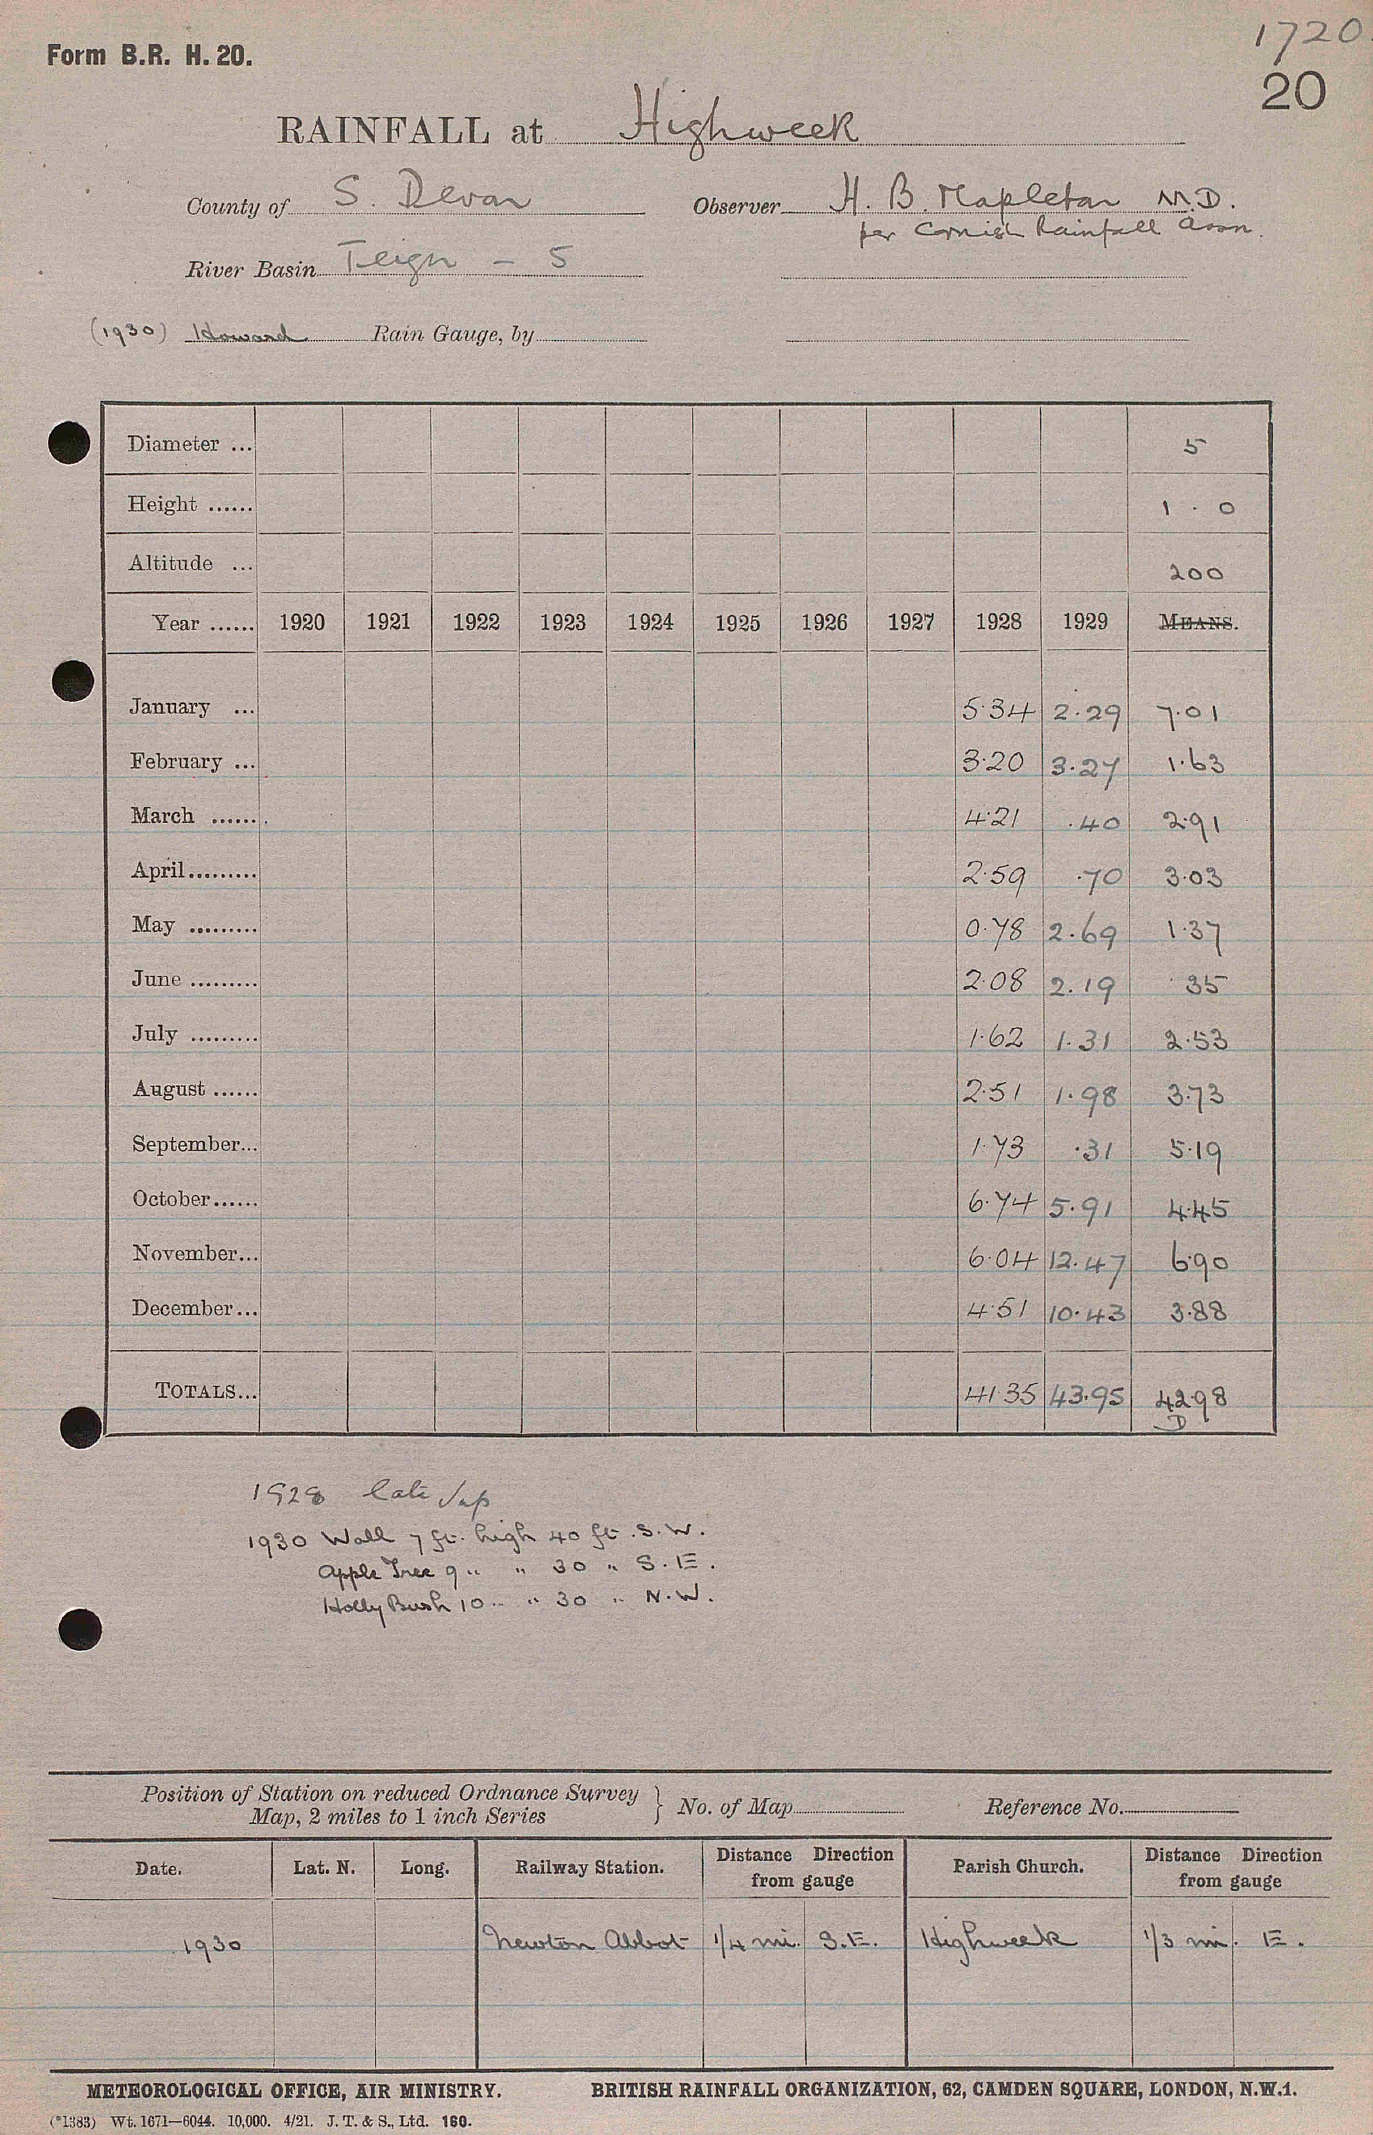 1720.
Form B.R. H. 20.
20
RAINFALL at Highweek
County of S. Devon Observer H. B. Mapleton M.D.
per Cornish Rainfall Assn.
River Basin Teign - 5
(1930) Howard Rain Gauge, by
Diameter ... 5
Height ...... 1 · 0
Altitude ... 200
Year ...... 1920 1921 1922 1923 1924 1925 1926 1927 1928 1929 MEANS.
January ... 5·34 2·29 7·01
February ... 3·20 3·27 1·63
March ...... 4·21 ·40 2·91
April ......... 2·59 ·70 3·03
May ......... 0·78 2·69 1·37
June ......... 2·08 2.19 ·35
July ......... 1·62 1·31 2·53
August ...... 2·51 1·98 3·73
September... 1·73 ·31 5·19
October...... 6·74 5·91 4·45
November... 6·04 12·47 6·90
December... 4·51 10·43 3·88
TOTALS... 41·35 43·95 42·98
D
1928
1930 Wall 7 ft. high 40 ft. S.W.
Apple Tree 9 " " 30 " S.E.
Holly Bush 10 " " 30 " N.W.
Position of Station on reduced Ordnance Survey
Map, 2 miles to 1 inch Series } No. of Map Reference No.
Date. Lat. N. Long. Railway Station. Distance from gauge Direction Parish Church. Distance from gauge Direction
1930 Newton Abbot 1/4 mi. S.E. Highweek 1/3 mi. E.
METEOROLOGICAL OFFICE, AIR MINISTRY. BRITISH RAINFALL ORGANIZATION, 62, CAMDEN SQUARE, LONDON, N.W.1.
(*1383) Wt. 1671—6044. 10,000. 4/21. J. T. & S., Ltd. 160.